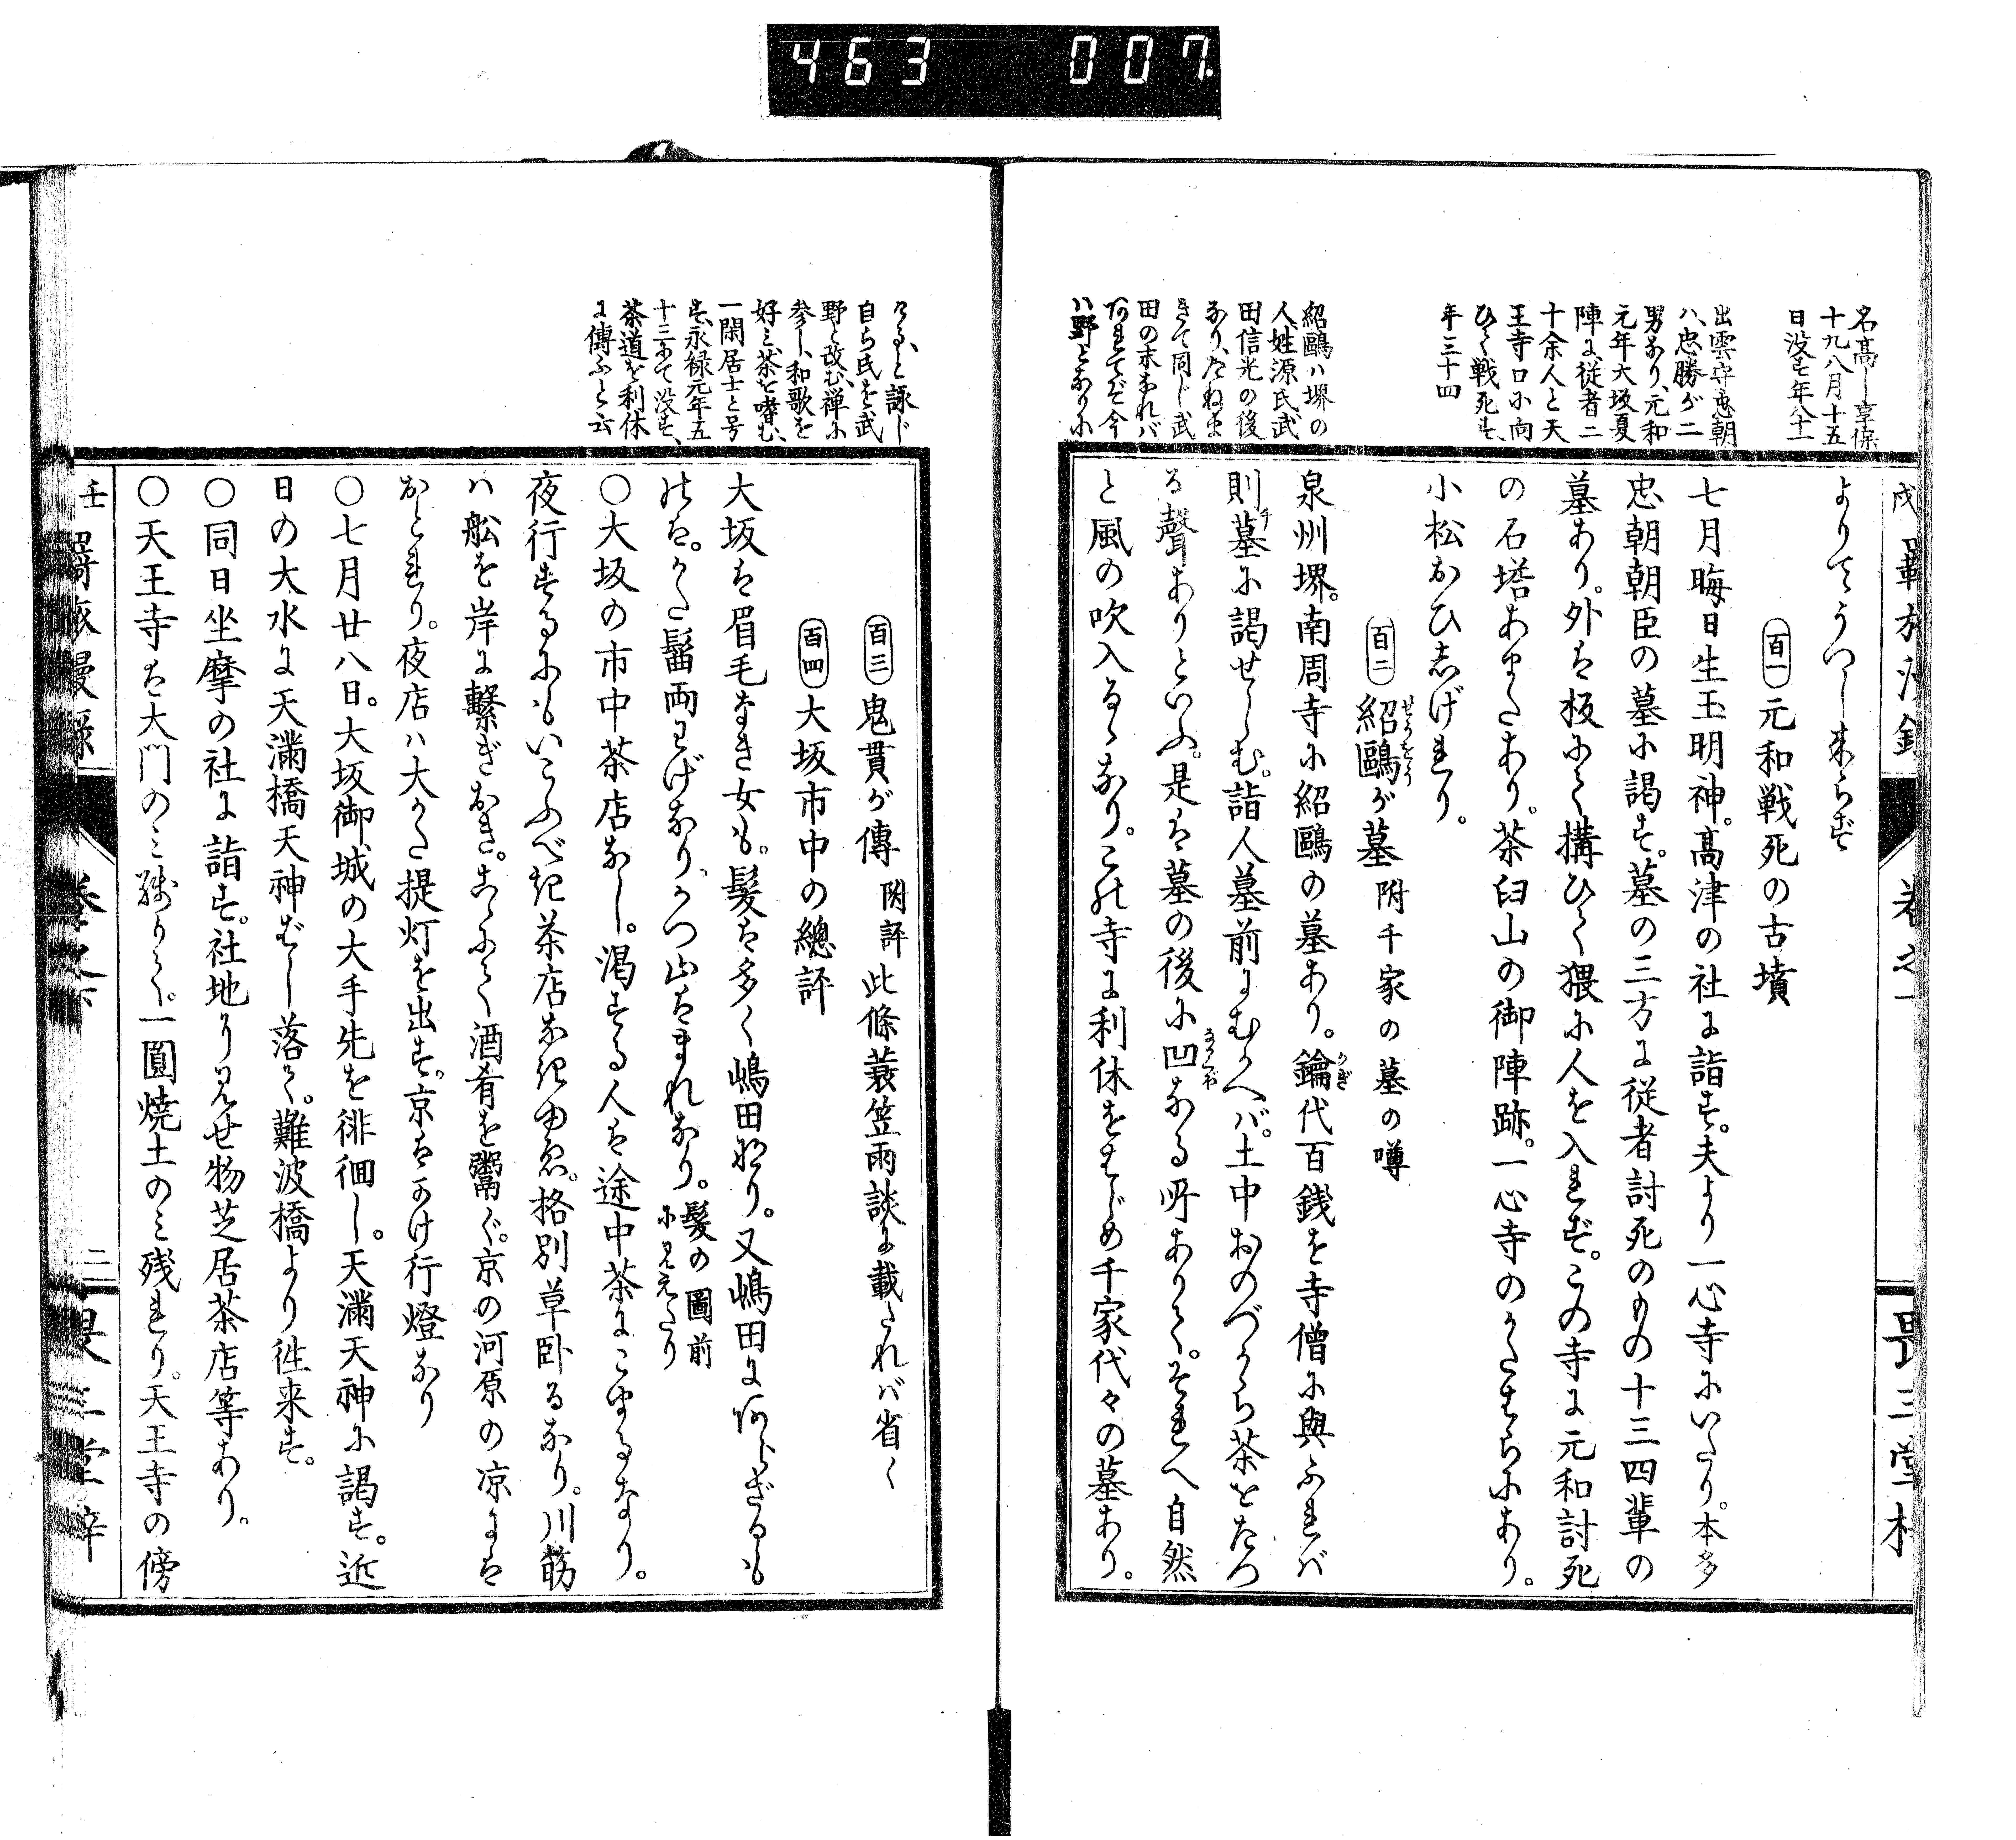 463 007.
名高し享保
十九八月十五
日没す年八十一
出雲守忠朝
ハ忠勝が二
男なり、元和
元年大坂夏
陣に従者二
十余人と天
王寺口に向
ひて戦死す、
年三十四
紹鷗ハ堺の
人、姓源氏武
田信光の後
なり、たねま
きて同じ武
田の末なれバ
あれてぞ今
ハ野となりに
ける、と詠じ
自ら氏を武
野と改む、禅に
參し、和歌を
好み、茶を嗜む、
一閑居士と号
す、永禄元年五
十三にて没す、
茶道を利休
に傳ふと云
よりてうつし来らず
百一 元和戦死の古墳
七月晦日生玉明神。高津の社に詣す。夫より一心寺にいたり。本多
忠朝朝臣の墓に謁す。墓の三方に従者討死のもの十三四輩の
墓あり。外は板にて搆ひて猥に人を入れず。この寺に元和討死
の石塔あまたあり。茶臼山の御陣跡。一心寺のかたはらにあり。
小松おひしげれり。
百二 紹鷗が墓 附千家の墓の噂
泉州堺。南周寺に紹鷗の墓あり。鑰代百銭を寺僧に與ふれバ
則チ墓に謁せしむ。詣人墓前にむかへバ。土中おのづから茶をたつ
る聲ありといふ。是は墓の後に凹なる所ありて。それへ自然
と風の吹入るゝなり。この寺に利休をはじめ千家代々の墓あり。
百三 鬼貫が傳 附評 此條蓑笠雨談に載たれバ省く
百四 大坂市中の總評
大坂は眉毛なき女も。髮は多く嶋田なり。又嶋田にあらざるも
のは。かた髷両わげなり。かつ山はまれなり。髮の圖前にみえたり
○大坂の市中茶店なし。渇する人は途中茶にこまるなり。
夜行するにもいこふべき茶店なきゆゑ。格別草臥るなり。川筋
ハ舩を岸に繋ぎおき。こゝにて酒肴を鬻ぐ。京の河原の凉には
おとれり。夜店ハ大かた提灯を出す。京はかけ行燈なり
○七月廿八日。大坂御城の大手先を徘徊し。天満天神に謁す。近
日の大水に天満橋天神ばし落て。難波橋より徃来す。
○同日坐摩の社に詣す。社地りみせ物芝居茶店等あり。
○天王寺は大門のみ残りて。一圓燒土のみ残れり。天王寺の傍